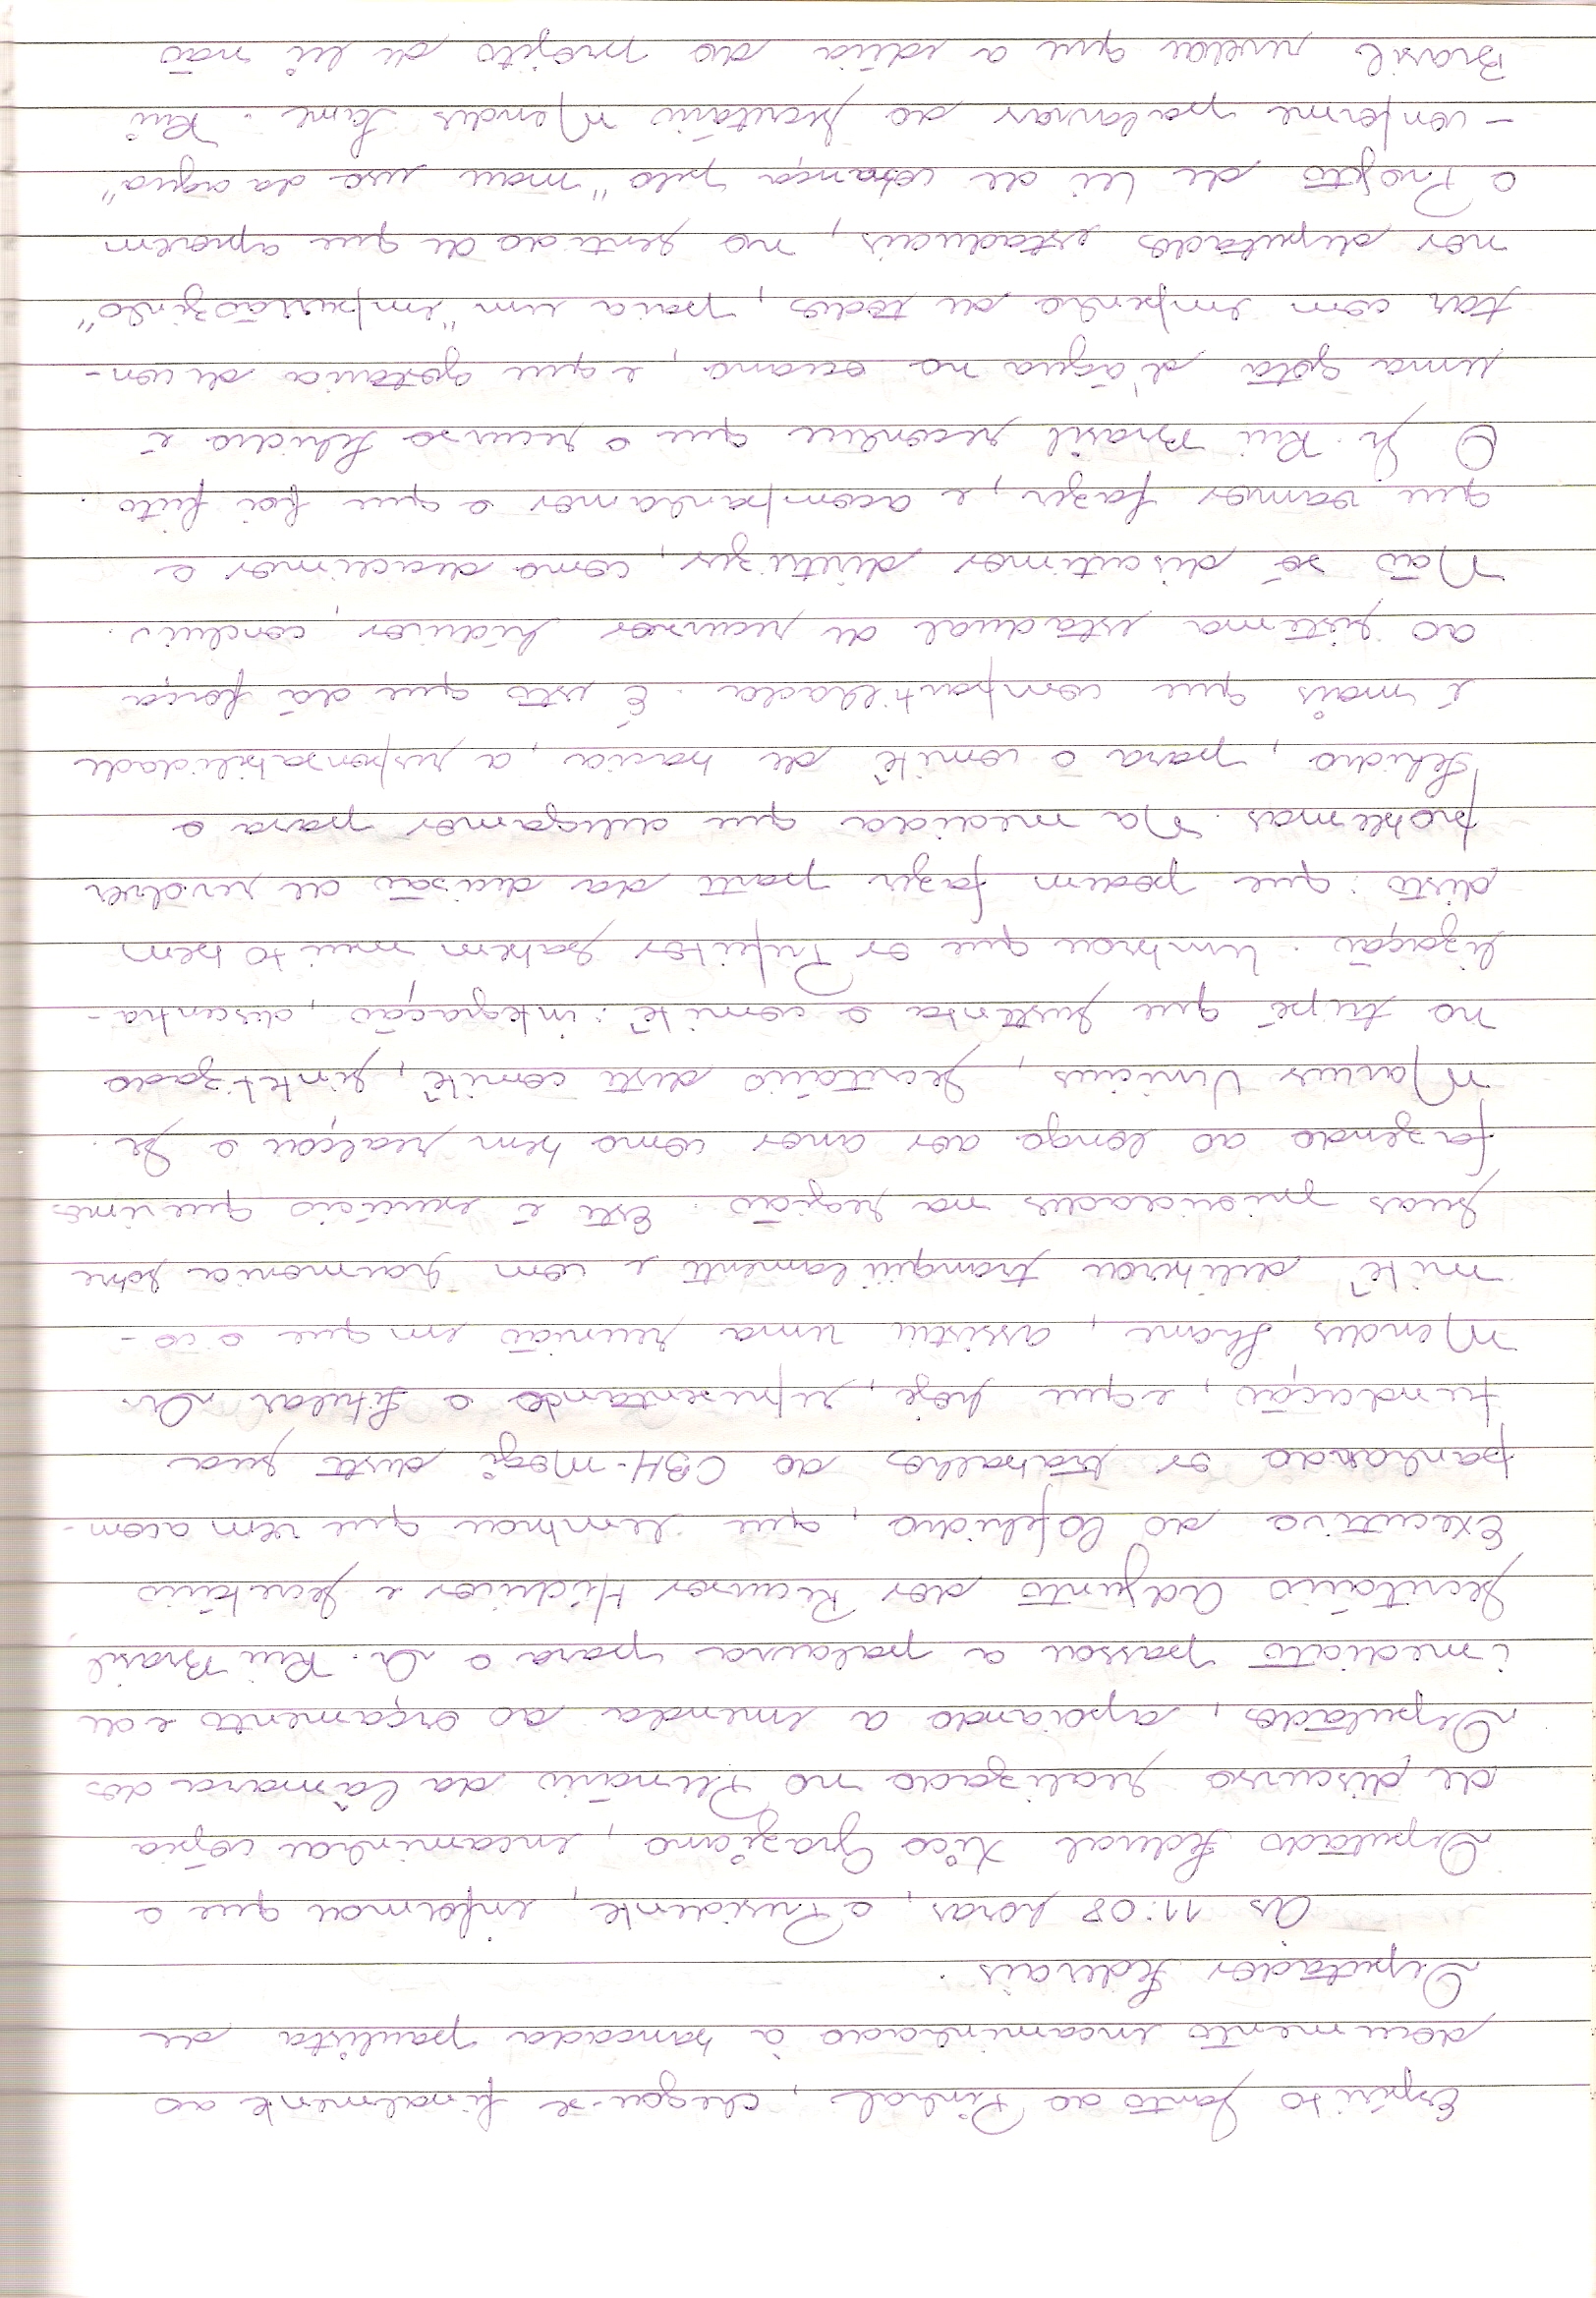 Espírito Santo do Pinhal, chegou-se finalmente ao
documento encaminhado à bancada paulista de
Deputados Federais.
As 11:08 horas, o Presidente, informou que o
Deputado Federal Xico Graziano, encaminhou cópia
de discurso realizado no Plenário da Câmara dos
Deputados, apoiando a emenda ao orçamento e de
imediato passou a palavra para o Dr. Rui Brasil
Secretário Adjunto dos Recursos Hídricos e Secretário
Executivo do Cofehidro, que lembrou que vem acom-
panhando os trabalhos do CBH-Mogi desde sua
fundação, e que hoje, representando o titular Dr.
Mendes Thame, assistiu uma reunião em que o co-
mitê deliberou tranqüilamente e com harmonia sobre
suas prioridades na região. Este é exercício que vimos
fazendo ao longo dos anos como bem realçou o Sr.
Marcus Vinicius, Secretário deste comitê, sintetizado
no tripé que sustenta o comitê: integração, descentra-
lização. Lembrou que os Prefeitos sabem muito bem
disto: que podem fazer parte da decisão de resolver
problemas. Na medida que delegamos para o
Fehidro, para o comitê de bacia, a responsabilidade
é mais que compartilhada. É isto que dá força
ao sistema estadual de recursos hídricos, concluiu.
Não só discutimos diretrizes, como decidimos o
que vamos fazer, e acompanhamos o que foi feito.
O Sr. Rui Brasil reconhece que o recurso Fehidro é
uma gota d'água no oceano, e que gostaria de con-
tar com empenho de todos, para um "empurrãozinho"
nos deputados estaduais, no sentido de que aprovem
o Projeto de Lei de cobrança pelo "mau uso da água"
- conforme palavras do Secretário Mendes Tame. Rui
Brasil revelou que a idéia do projeto de lei não